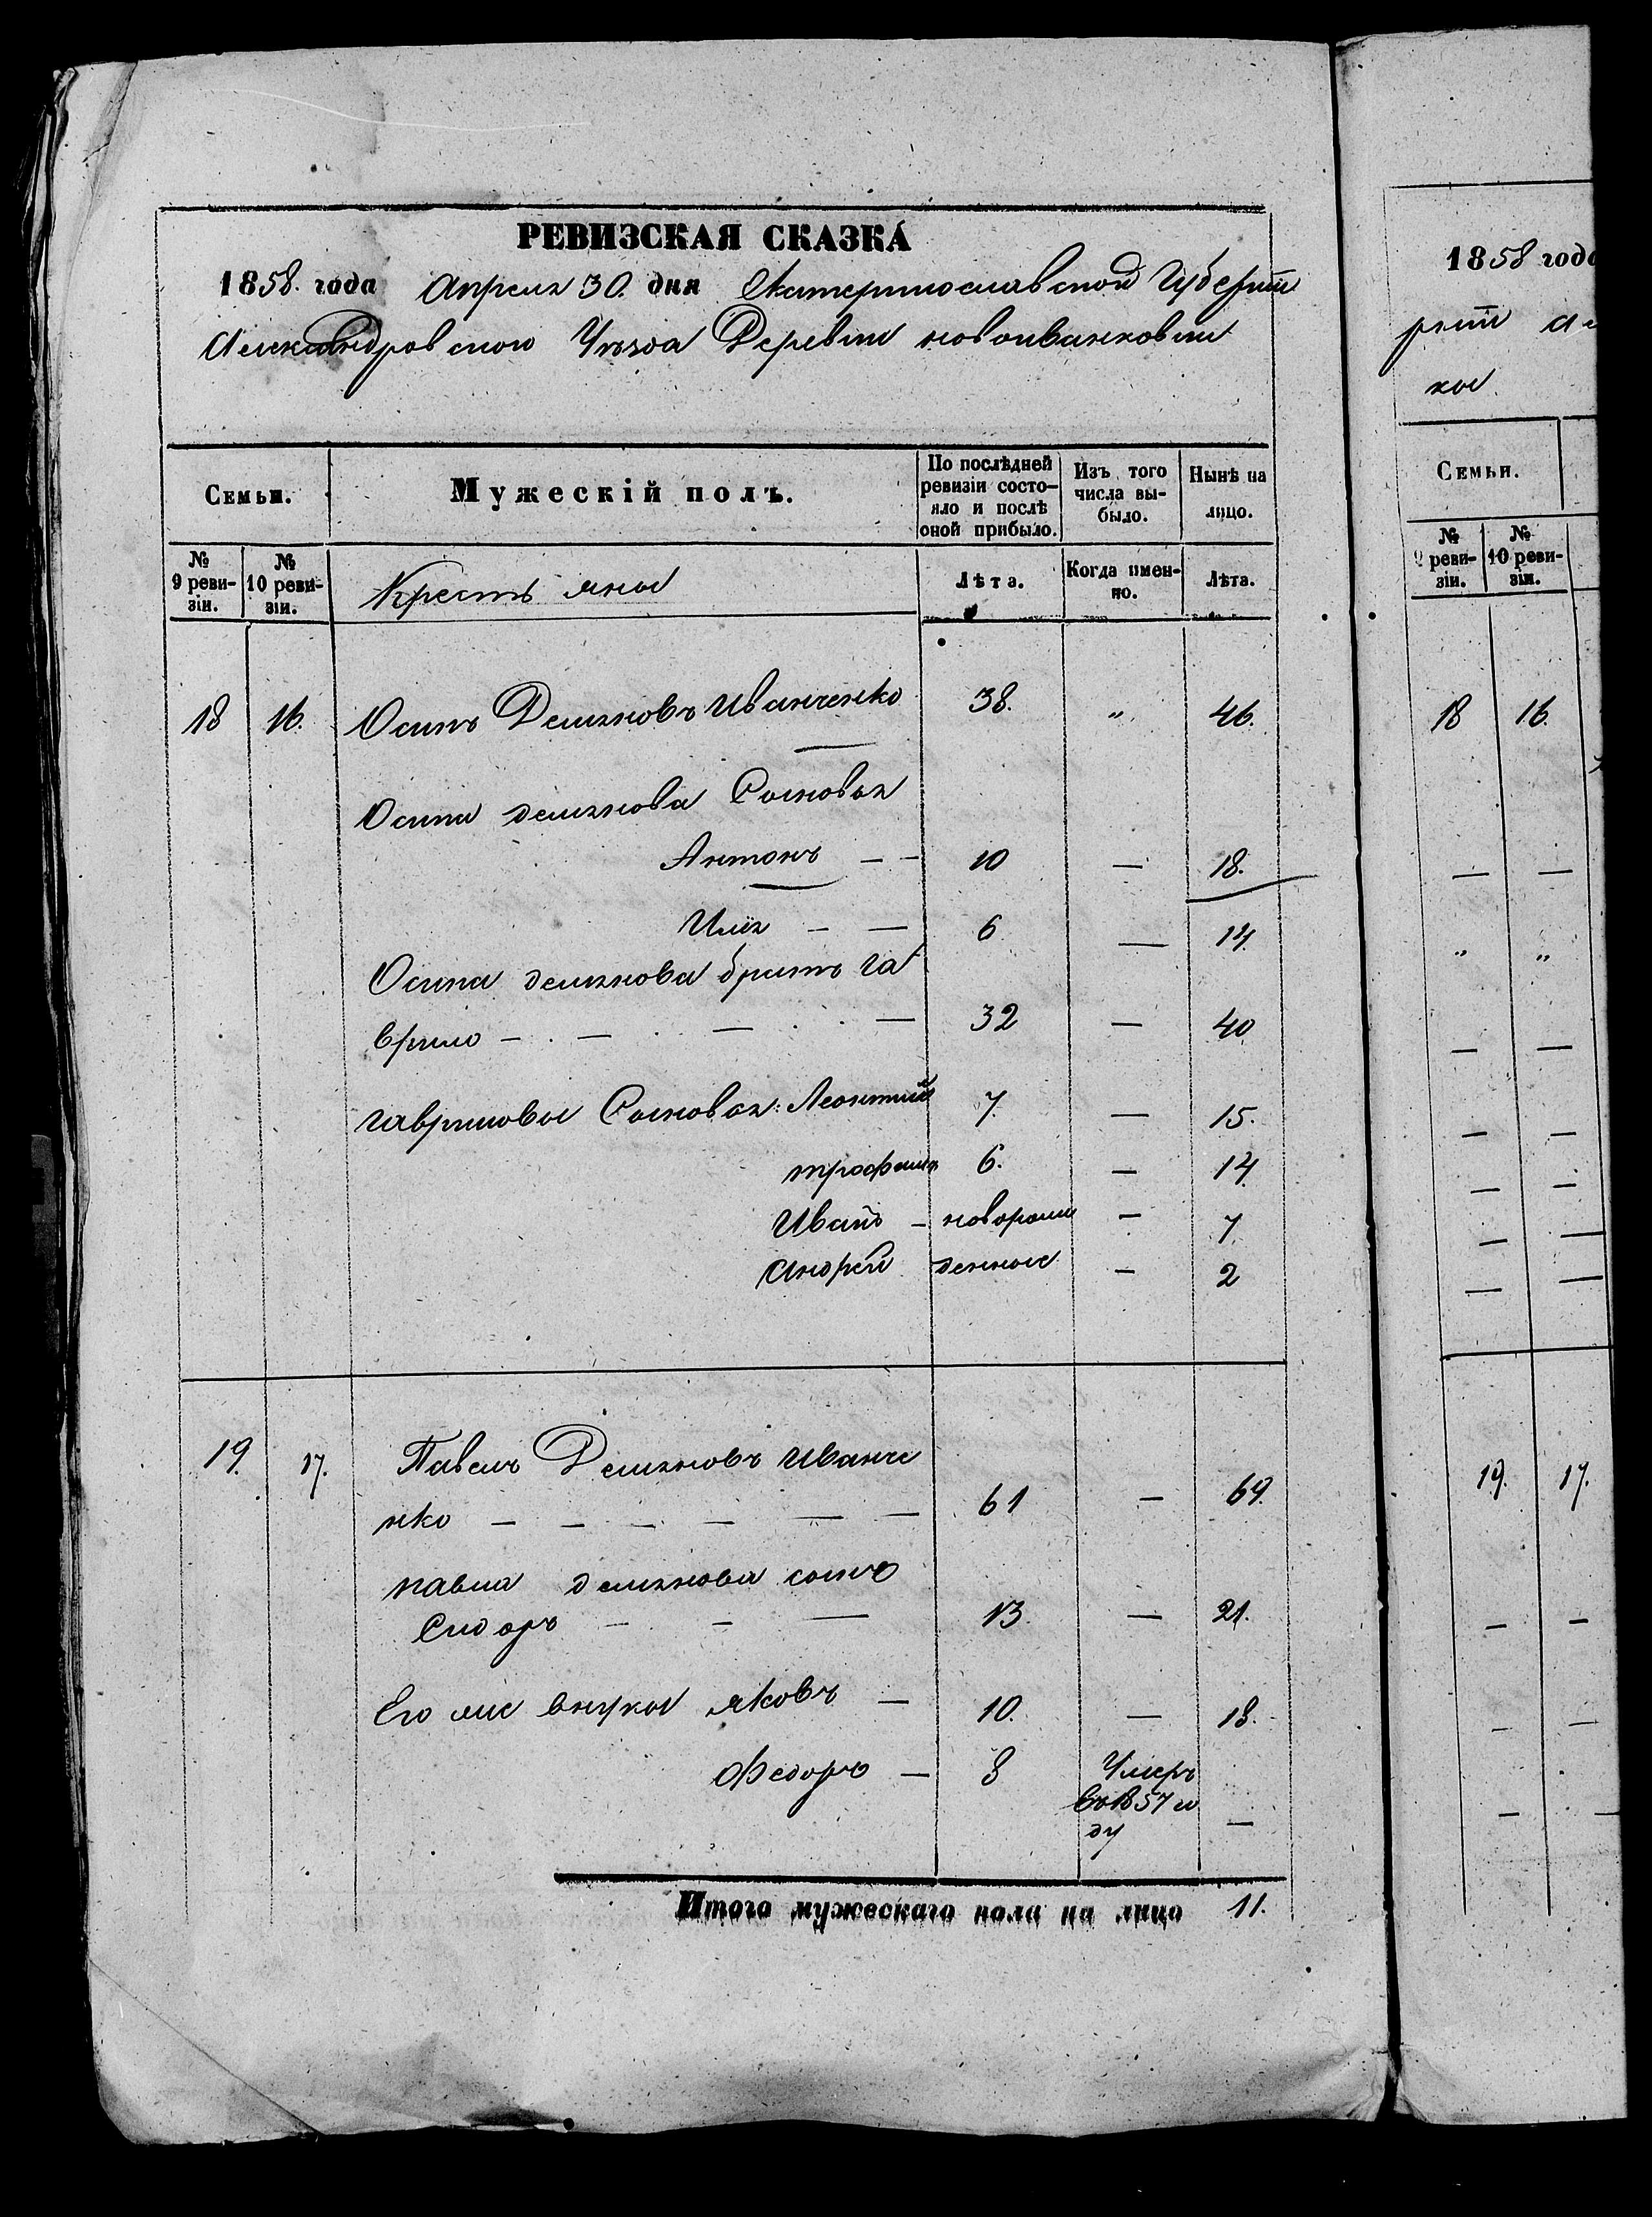 РЕВИЗСКАЯ СКАЗКА
1858. года Апреля 30. дня Екатеринославской Губернiи
Александровского Уѣзда Деревни новоиванковки
Семьи.
Мужескiй полъ.
По послѣдней ревизiи состо-яло и послѣ оной прибыло.
Изъ того числа вы-было.
Нынѣ на лицо.
№ 9 реви-зiи.
№ 10 реви-зiи.
Крестьяны
Лѣта.
Когда имен-но.
Лѣта.
18 16. Осипъ Демяновъ Иванченко 38. „ 46.
Осипа демянова Сыновья
Антонъ — — 10 — 18.
Илiя — — 6 — 14
Осипа демянова братъ га
врило — — — — 32 — 40
гавриловы Сыновья: Леонтий 7 — 15.
трофимъ 6. — 14
Иванъ — новорож — 7
Андрей денные — 2
19. 17. Павелъ Демяновъ Иванче
нко — — — — — — 61 — 69.
павла демянова сынъ
Сидоръ — — — 13 — 21.
Его же внуки яковъ — 10. — 18.
Федоръ — 8 Умеръ
въ 1857 го
ду —
Итого мужескаго пола на лицо 11.
1858 года
рнiи Ал
ки
Семьи.
9 реви-зiи.
№ 10 реви-зiи.
18 16.
— —
„ „
— —
— —
— —
— —
— —
19. 17.
— —
— —
— —